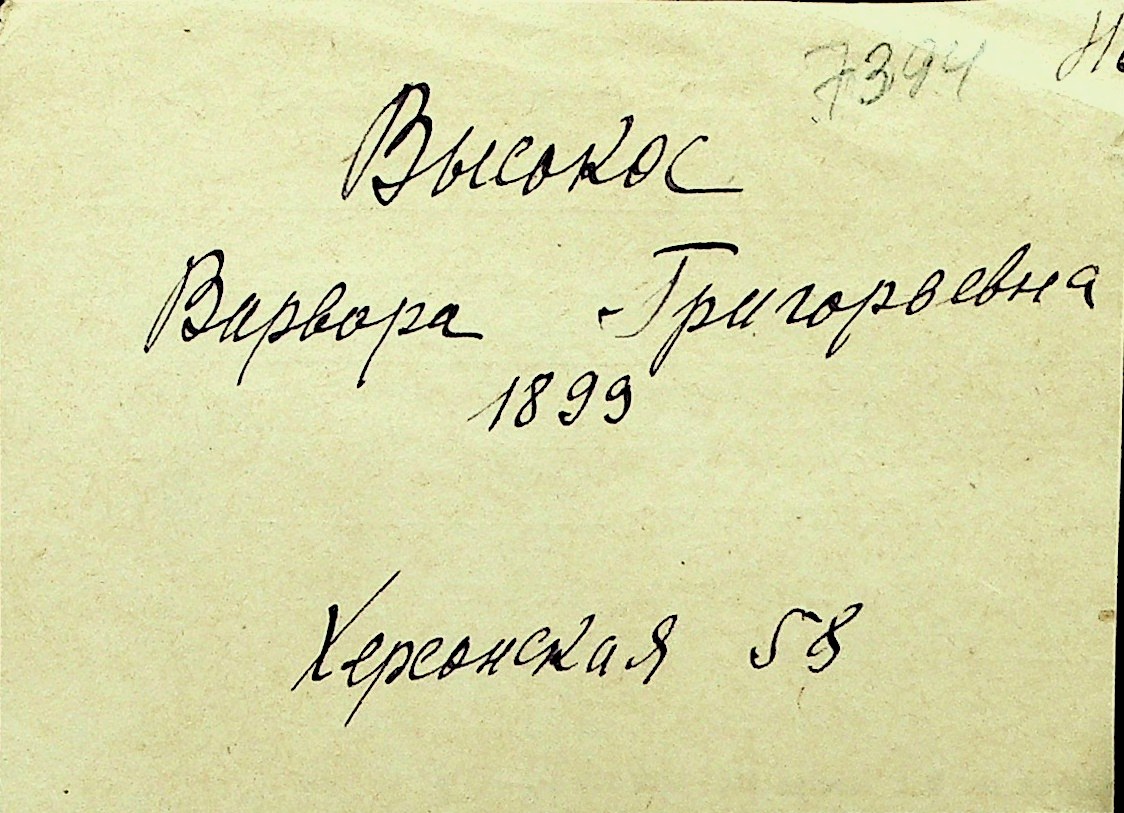 7394
Высокос
Варвора Григорьевна
1899
Херсонская 58